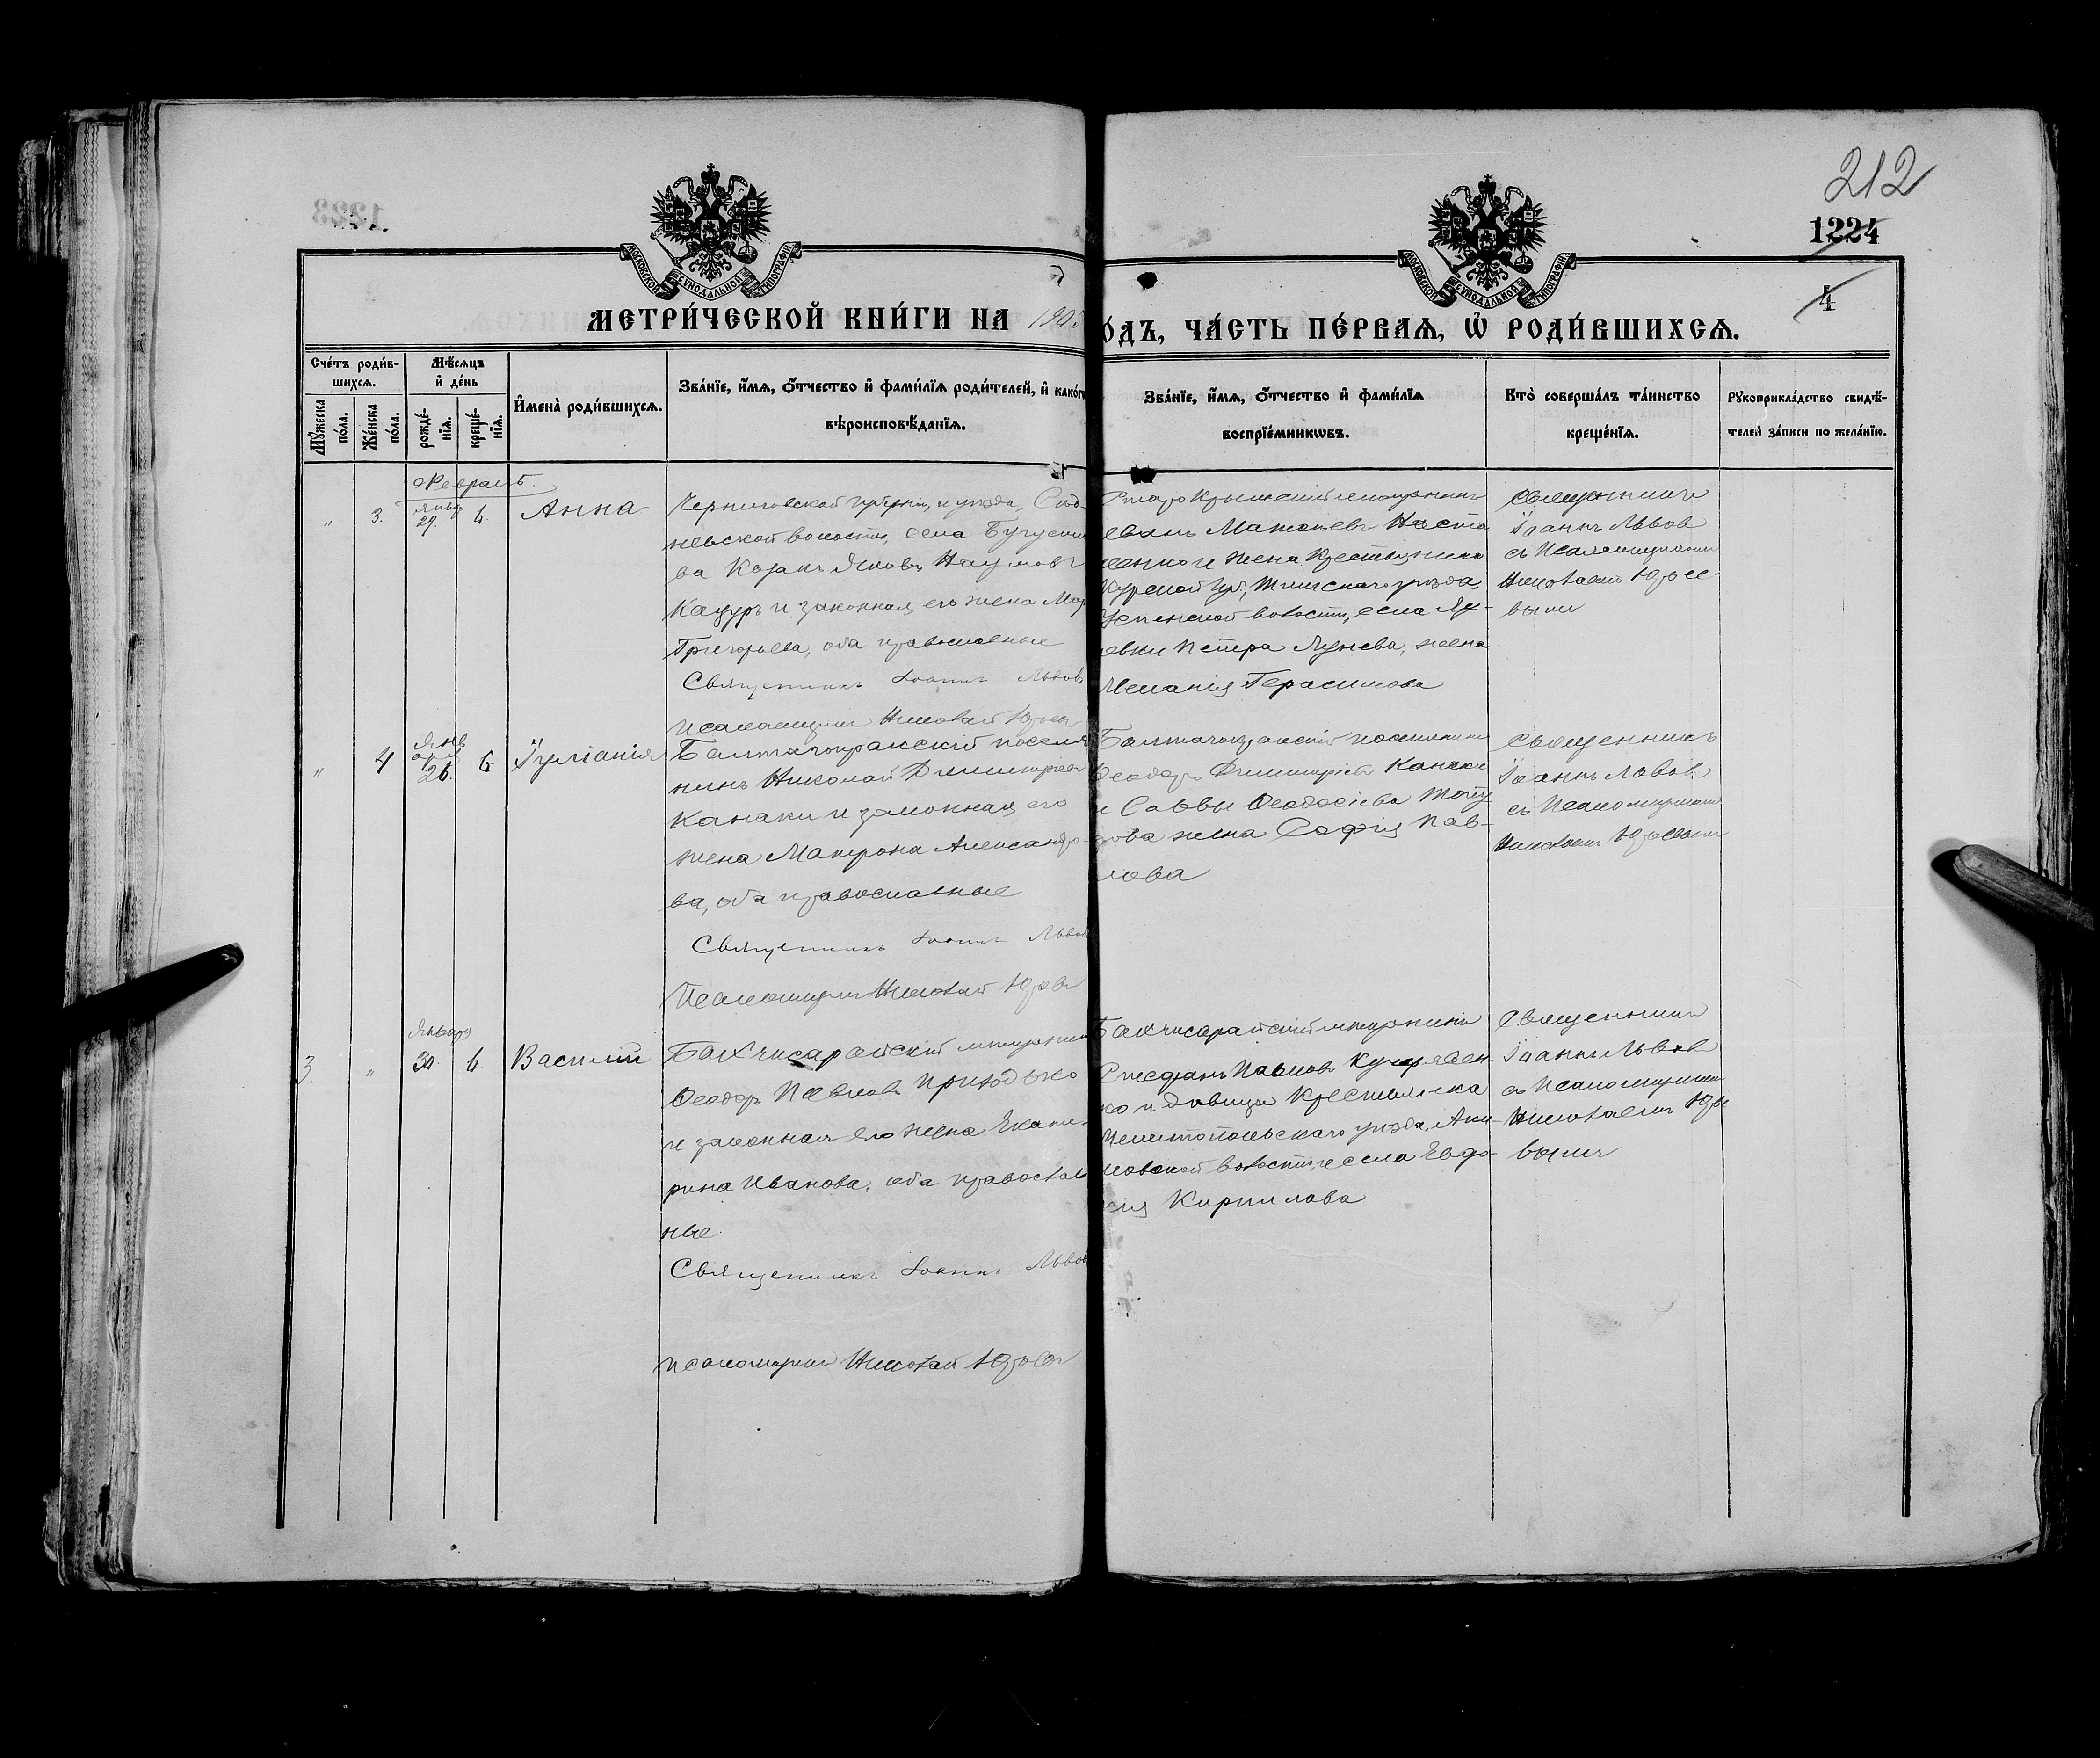 212
1224
4
МОСКОВСКОЙ СѴНОДАЛЬНОЙ ТИПОГРАФІИ
МОСКОВСКОЙ СѴНОДАЛЬНОЙ ТИПОГРАФІИ
МЕТРИ́ЧЕСКОЙ КНИ́ГИ НА 1905
ОДЪ, ЧА́СТЬ ПЕ́РВАЯ, Ѡ РОДИ́ВШИХСЯ.
Сче́тъ роди́в-
шихся.
Мѣ́сяцъ
и де́нь
Му́жеска по́ла.
Же́нска по́ла.
рожде́-
нія.
креще́-
нія.
Имена̀ роди́вшихся.
Зва́нїе, и́мя, ѻ́тчество и фами́лїя роди́телей, и како́г
вѣроисповѣ́данїя.
Зва́нїе, и́мя, ѻ́тчество и фами́лїя
воспрїе́мникѡвъ.
Кто̀ соверша́лъ та́инство
креще́нїя.
Рукоприкла́дство свидѣ́-
телей за́писи по жела́нїю.
Февраль.
„ 3. Январ 29. 6. Анна
Черниговской губерніи, и уѣзда, Сед-
невской волости, села
ва Козакъ Яковъ Наумовъ
Кацуръ и законная его жена Мар
Григорьева, оба православные
Священникъ Іоаннъ Львовъ
Псаломщикъ Николай Юрьевъ
Старокрымскій мещанинъ
и жена крестьянина
Курской губ., Тимскаго уѣзда,
волости, села Лу-
евки Петра Лунева, жена
Меланія Герасимова
Священникъ
Іоаннъ Львовъ
съ Псаломщикомъ
Николаемъ Юрье-
вымъ
„ 4 Янв 26. 6 Іуліанія
Балтачокракскій поселя
нинъ Николай Димитріевъ
Канаки и законная его
жена Матрона Александро-
ва, оба православные
Священникъ Іоаннъ Львовъ
Псаломщикъ Николай Юрьевъ
Балтачокракскій поселянинъ
Ѳеодоръ Димитріевъ Канаки
и Саввы Ѳеодосіева
жена Софія Пав-
лова
Священникъ
Іоаннъ Львовъ
съ Псаломщикомъ
Николаемъ Юрьевымъ
Января
3. „ 30. 6. Василій
Бахчисарайскій мещанин
Ѳеодоръ Павловъ Приходько
и законная его жена Екате-
рина Иванова, оба православ
ные.
Священникъ Іоаннъ Львовъ
Псаломщикъ Николай Юрьевъ
Бахчисарайскій мещанинъ
Стефанъ Павловъ Кучерявен-
ко и дѣвица крестьянка
Мелитопольскаго уѣзда, Аки-
мовской волости и села Евдо-
кія Кириллова
Священникъ
Іоаннъ Львовъ
съ Псаломщикомъ
Николаемъ Юрье
вымъ